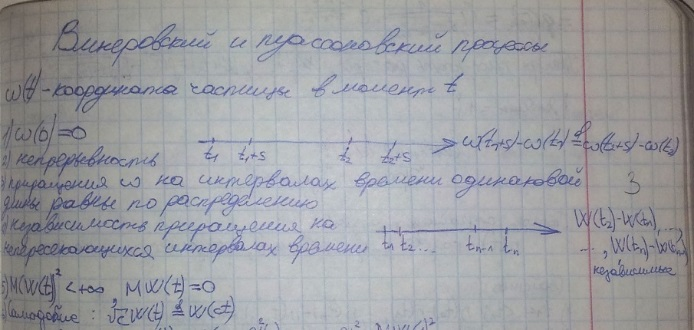 Винеровский и пуассоновский процессы
ω(t) - координата частицы в момент t
1) ω(0)=0
t₁ t₁+s t₂ t₂+s ω(t₁+s)-ω(t₁) d= ω(t₂+s)-ω(t₂)
2) непрерывность
3) приращения ω на интервалах времени одинаковой
3
длины равны по распределению
4) независимость приращения на
непересекающихся интервалах времени
t₁ t₂ ... tₙ₋₁ tₙ
W(t₂)-W(t₁),
..., W(tₙ)-W(tₙ₋₁)
независимые
5) M(W(t))² < +∞ MW(t)=0
Самоподобие : √c W(t) d= W(ct)